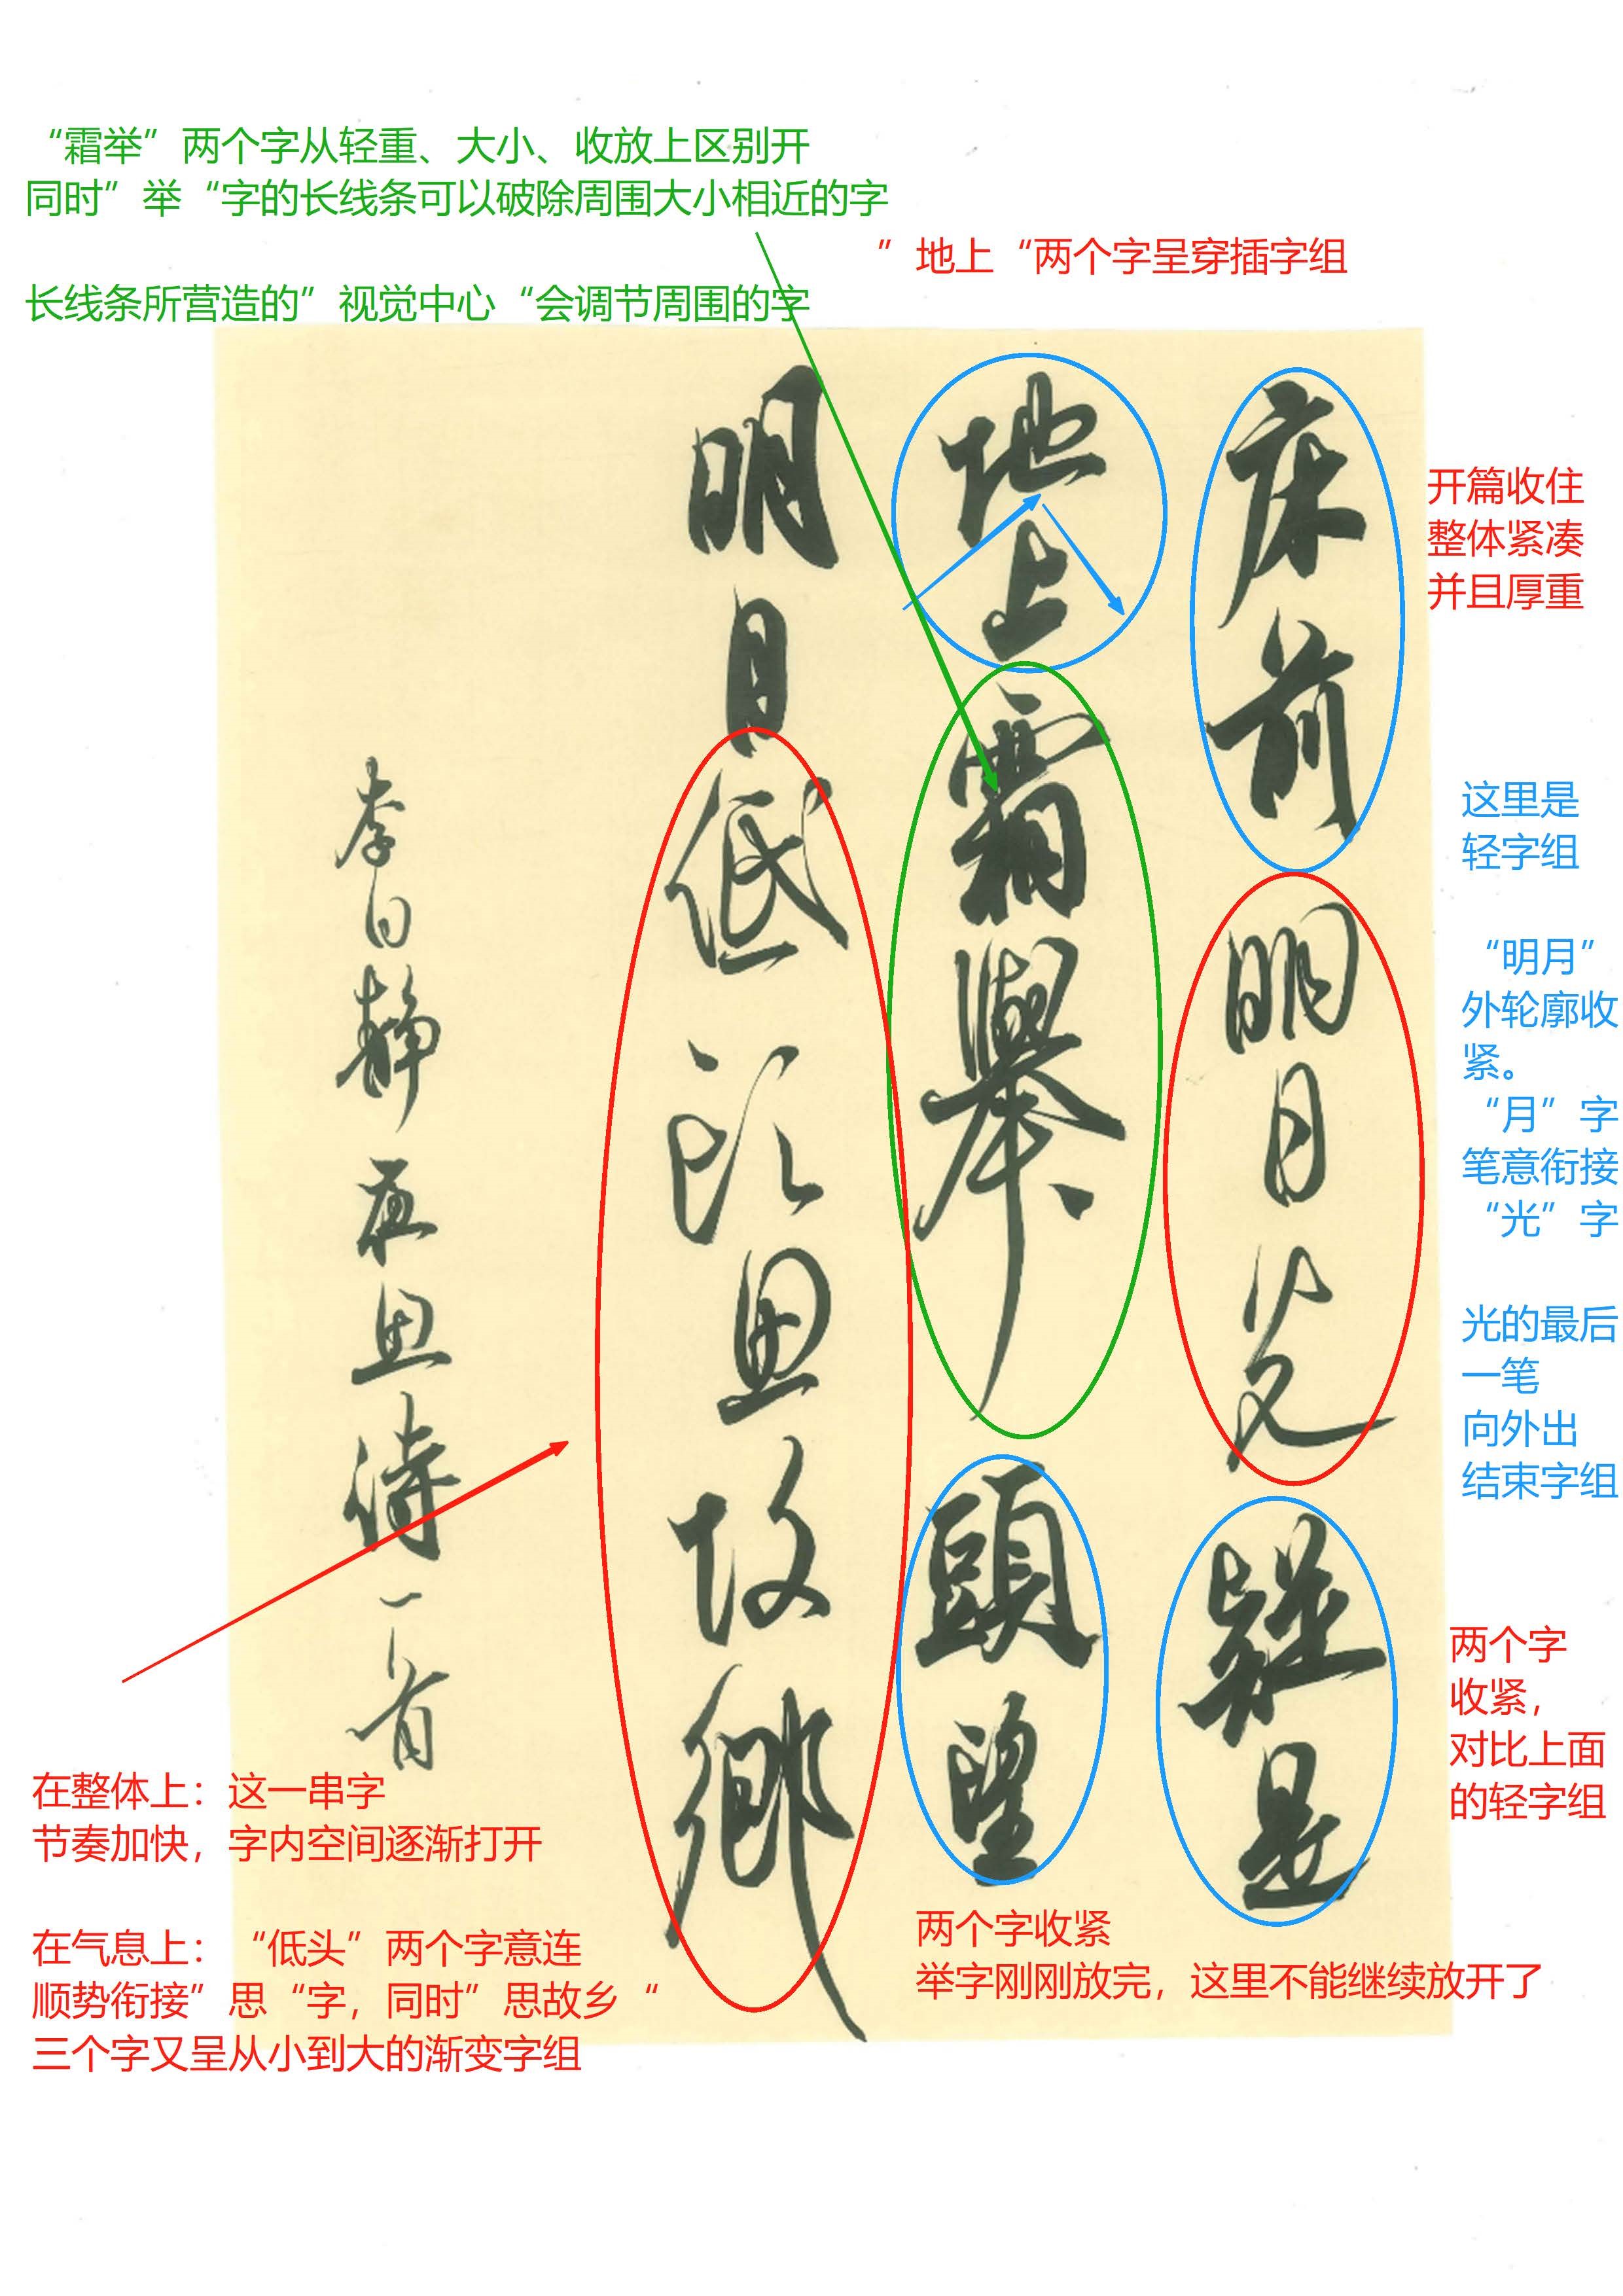 “霜举”两个字从轻重、大小、收放上区别开
同时”举“字的长线条可以破除周围大小相近的字
长线条所营造的”视觉中心“会调节周围的字
”地上“两个字呈穿插字组
床前明月光疑是
地上霜舉頭望
明月低头思故鄉
李白静夜思诗一首
开篇收住
整体紧凑
并且厚重
这里是
轻字组
“明月”
外轮廓收
紧。
“月”字
笔意衔接
“光”字
光的最后
一笔
向外出
结束字组
两个字
收紧，
对比上面
的轻字组
两个字收紧
举字刚刚放完，这里不能继续放开了
在整体上：这一串字
节奏加快，字内空间逐渐打开
在气息上：“低头”两个字意连
顺势衔接”思“字，同时”思故乡“
三个字又呈从小到大的渐变字组